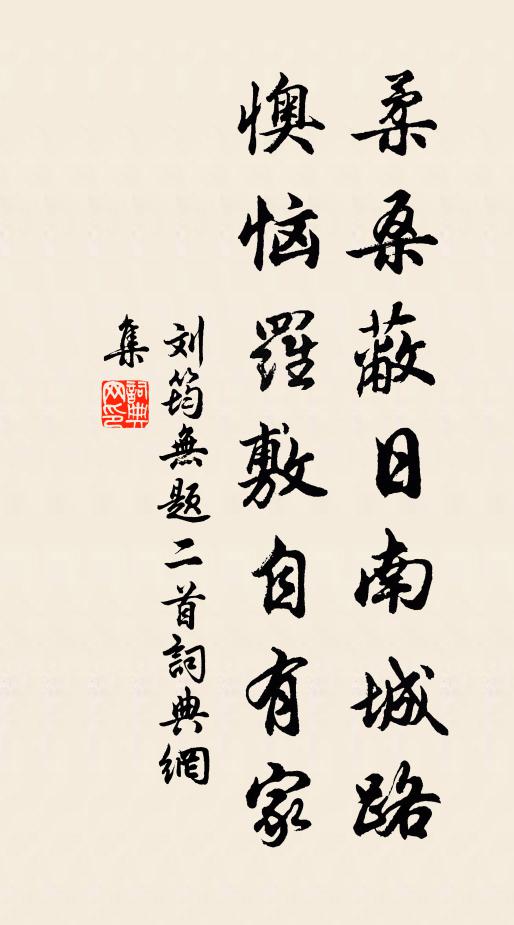 柔桑蔽日南城路
懊恼羅敷自有家
刘筠無题二首詞典網
集
詞典网印